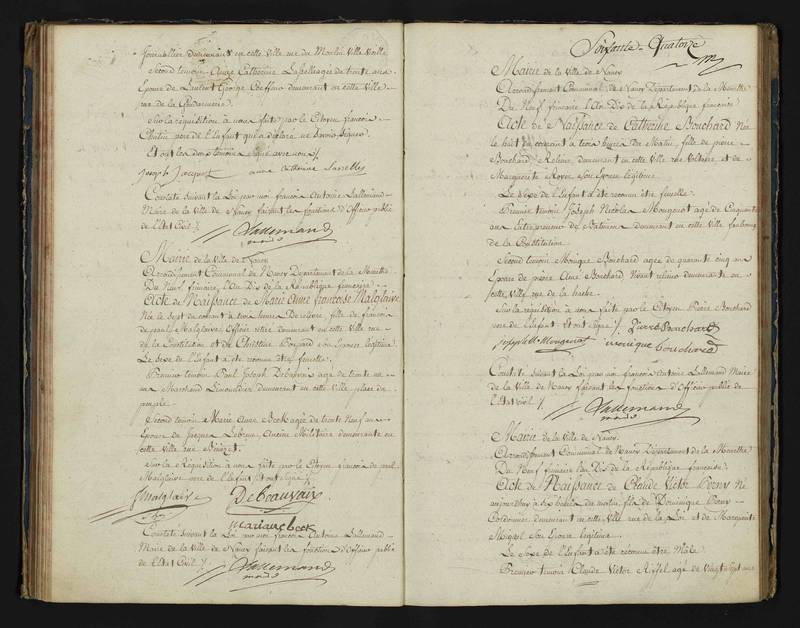 Journallier demeurant en cette Ville rue du Moulin Ville Vieille
Second temoin Anne Catherine Lasellez agée de trente ans
Epouse de Laurent George demeurant en cette Ville
rue de la Gendarmerie.
Sur la réquisition à nous faite par le Citoyen francois
père de l'Enfant qui a déclaré ne savoir signer
Et ont les deux temoins signé avec nous /.
Joseph Jacquot anne Catherine
Constaté suivant la Loi par moi francois Antoine Lallemand
Maire de la Ville de Nancy faisant les fonctions d'Officier public
de l'Etat Civil /.
Lallemand
Mairie de la Ville de Nancy
Arrondissement Communal de Nancy Departement de la Meurthe
Du Neuf frimaire l'An Dix de la République francoise
Acte de Naissance de Marie Anne francoise Malglaive
Née le Sept du courant à trois heures De relevée, fille de francois
de paul Malglaive Officier retiré demeurant en cette Ville rue
de la Constitution et de Christine Poupard son Epouse légitime
Le Sexe de l'Enfant a été reconnu être femelle.
Premier temoin Paul Joseph Debauvaix agé de trente
ans Marchand Limonadier demeurant en cette Ville place du
peuple
Second temoin Marie Anne Beck agée de trente Neuf ans
Epouse de Jacques Lebrun Ancien Militaire demeurante en
cette Ville rue
Sur la Réquisition à nous faite par le Citoyen francois de paul
Malglaive père de l'Enfant Et ont signé /.
Malglaive Debeauvaix
mariane beck
Constaté suivant la Loi par moi francois Antoine Lallemand
Maire de la Ville de Nancy faisant les fonctions d'Officier public
de l'Etat Civil /.
Lallemand
Soixante-Quatorze
Mairie de la Ville de Nancy
Arrondissement Communal de Nancy Departement de la Meurthe
Du Neuf frimaire l'An Dix de la République francoise
Acte de Naissance de Catherine Bouchard Née
le huit du courant à trois heures Du Matin, fille de pierre
Bouchard Relieur, demeurant en cette Ville rue Voltaire et de
Marguerite Royer son Epouse légitime
Le Sexe de l'Enfant a été reconnu être femelle.
Premier temoin Joseph Nicolas Mougenot agé de Cinquante
ans Entrepreneur de Batimens demeurant en cette Ville faubourg
de la Constitution.
Second temoin Monique Bouchard agée de quarante cinq ans
Epouse de pierre Bouchard relieur demeurante en
cette Ville rue de la hache.
Sur la réquisition à nous faite par le Citoyen Pierre Bouchard
père de l'Enfant Et ont signé /. Pierre Bouchard
joseph N. Mougenot monique bouchard
Constaté suivant la Loi par moi francois Antoine Lallemand Maire
de la Ville de Nancy faisant les fonctions d'Officier public de
l'Etat Civil /.
Lallemand
Mairie de la Ville de Nancy.
Arrondissement Communal de Nancy Departement de la Meurthe
Du Neuf frimaire l'an Dix de la République francoise.
Acte de Naissance de Claude Victor Né
aujourd'huy à six heures du matin, fils de Dominique
Cordonnier demeurant en cette Ville rue de la Loi et de Marguerite
Migaët son Epouse légitime.
Le Sexe de l'Enfant a été reconnu être Mâle
Premier temoin Claude Victor Riffel agé de Vingt Sept ans